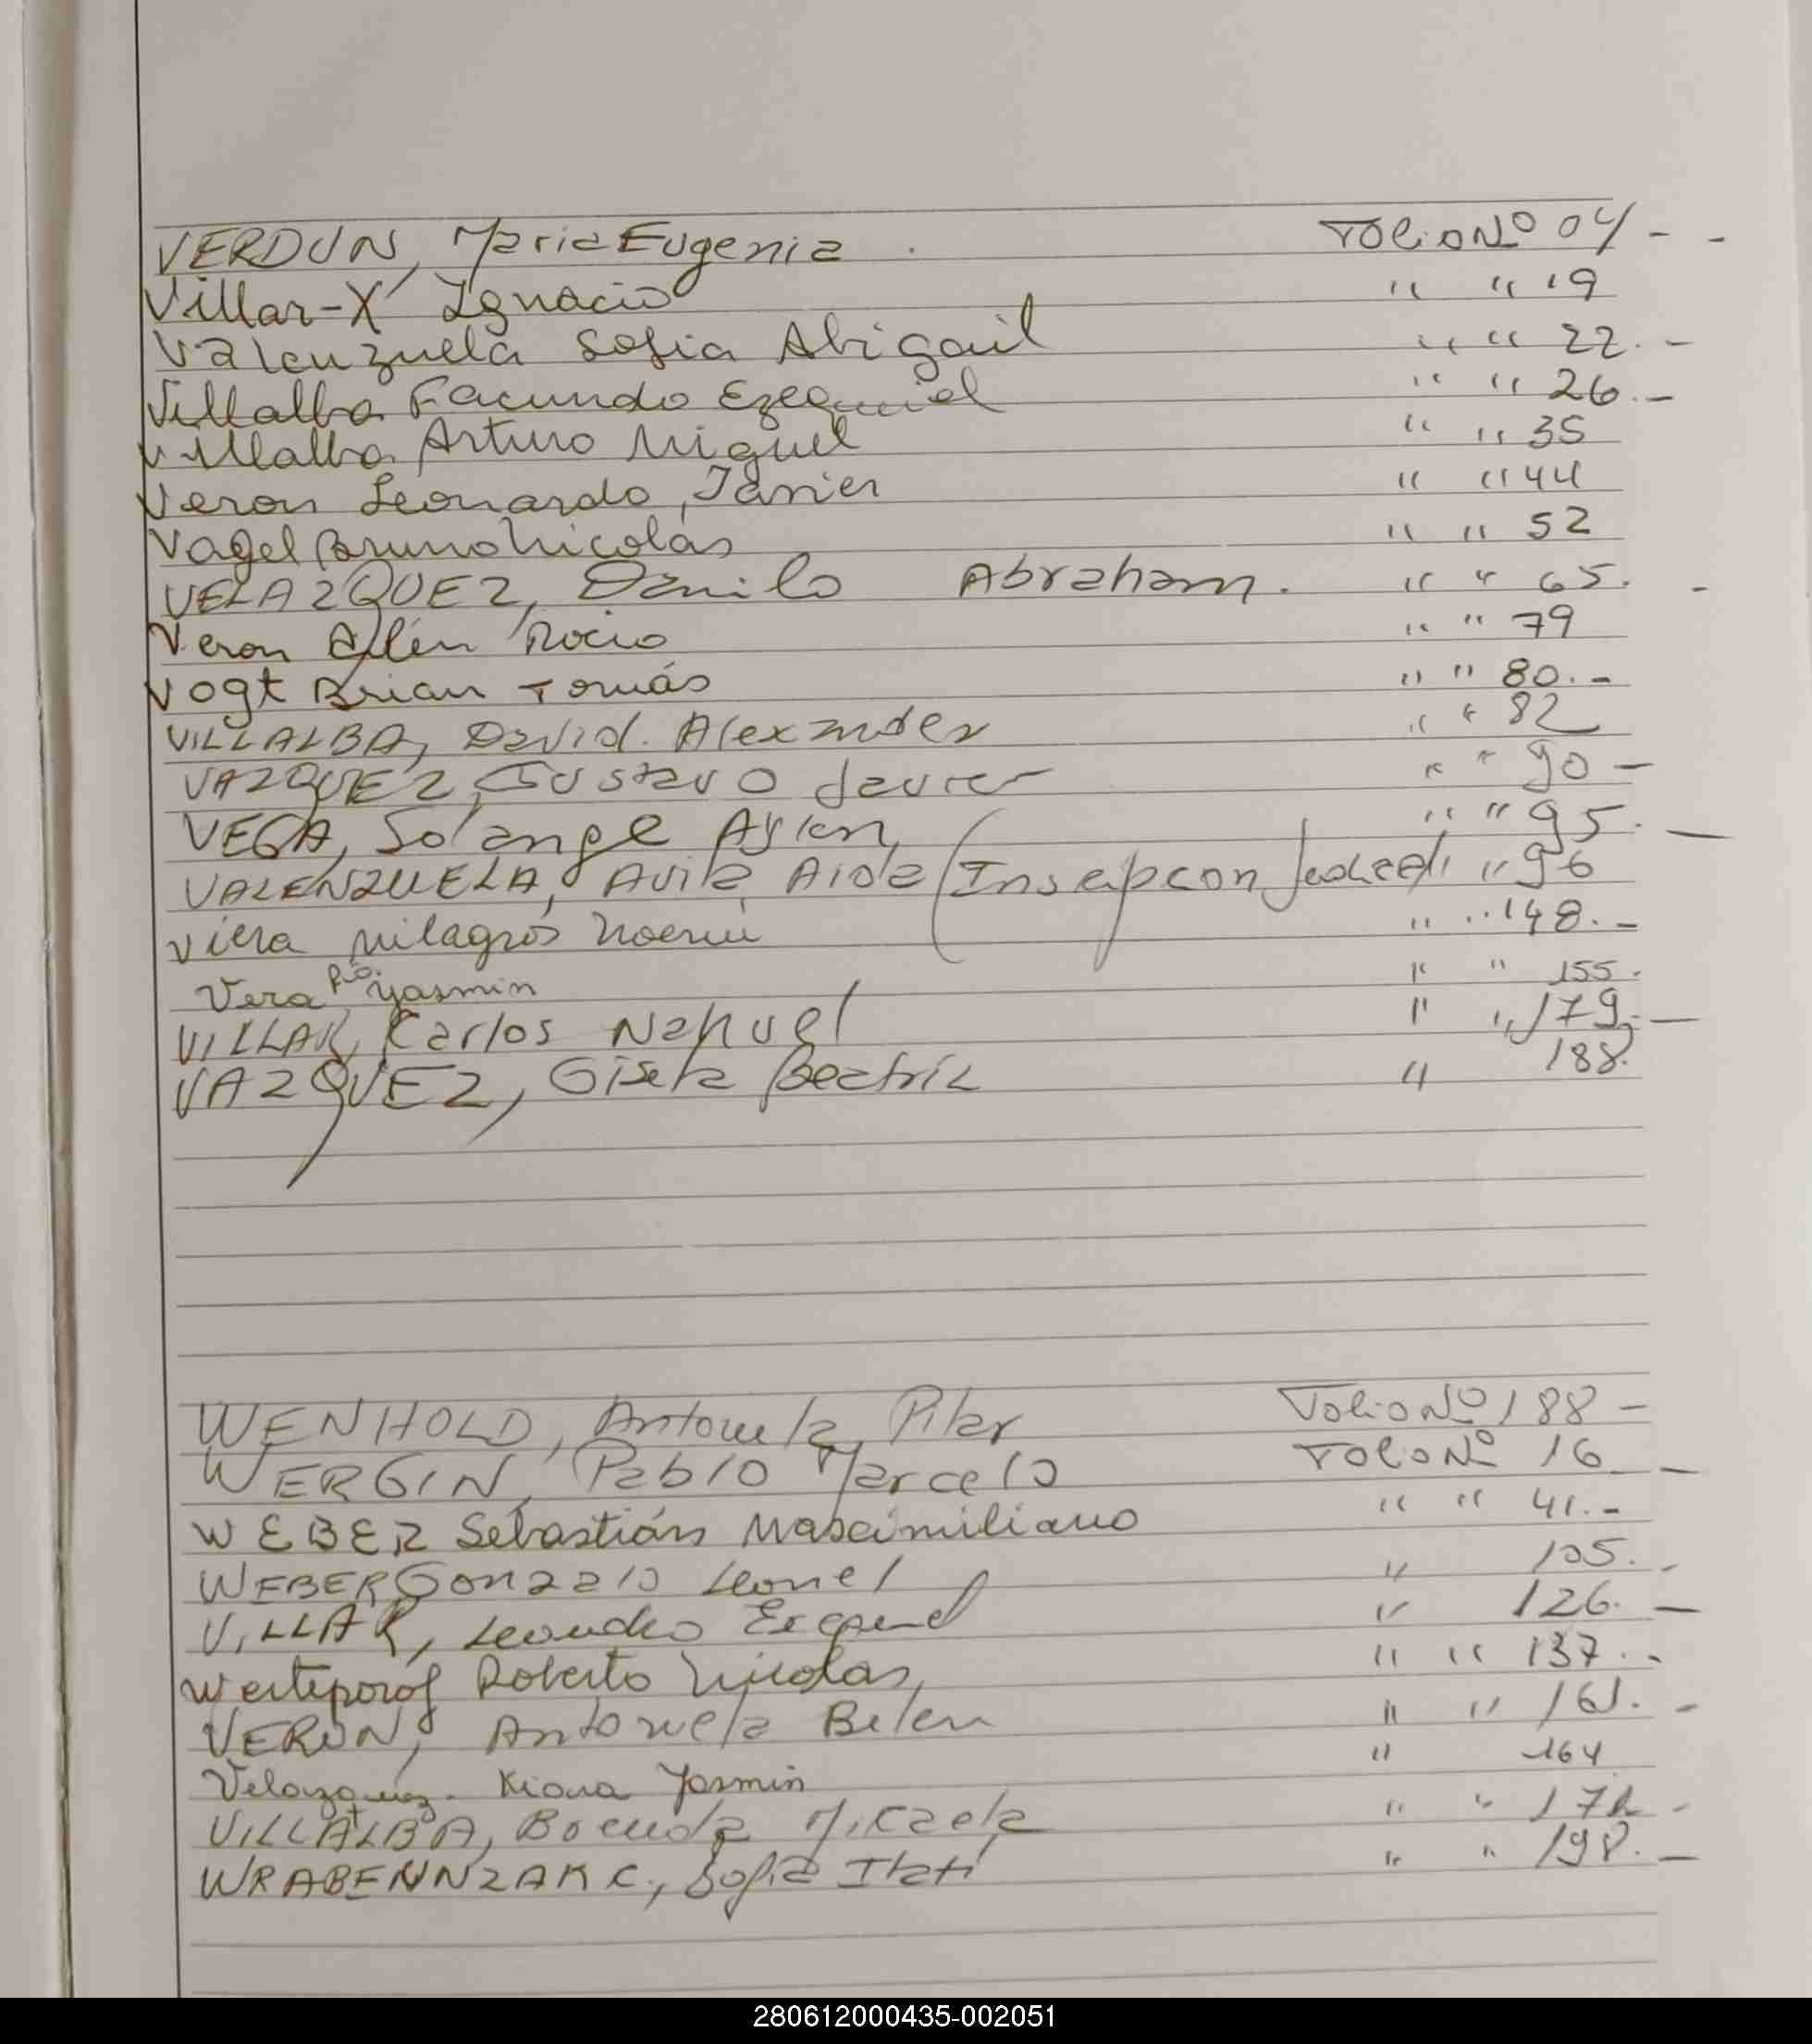 VERDUN, Maria Eugenia Folio Nº 04 - -
Villar-X Ignacio " " 19
Valenzuela Sofia Abigail " " 22. -
Villalba Facundo Ezequiel " " 26. -
Villalba Arturo Miguel " " 35
Veron Leonardo, Javier " " 44
Vagel Bruno Nicolás " " 52
VELAZQUEZ, Danilo Abraham. " " 65. -
Veron Aylén Rocio " " 79
Vogt Brian Tomás " " 80. -
VILLALBA, David. Alexander " " 82
VAZQUEZ, Gustavo Javier " " 90 -
VEGA, Solange Aylen, " " 95. -
VALENZUELA, Avila, Aida (Inscripcon Judicial) " 96
Viera Milagros Noemi " " 148. -
Vera Yasmin " " 155.
VILLAR, Carlos Nahuel " " 179. -
VAZQUEZ, Gisela Beatriz " 188.
WENHOLD, Antonela Pilar Folio Nº 188 -
WERGIN, Pablo Marcelo Folo Nº 16 -
WEBER Sebastián Maxcimiliano " " 41. -
WEBER Gonzalo Leonel " 105. -
VILLAR, Leandro Exequiel " 126. -
Roberto Nicolas, " " 137. -
VERON, Antonela Belen " " 161. -
Velazquez. Kiara Yasmin " 164
VILLALBA, Brenda Micaela " " -
Sofia Itatí " " 198. -
280612000435-002051